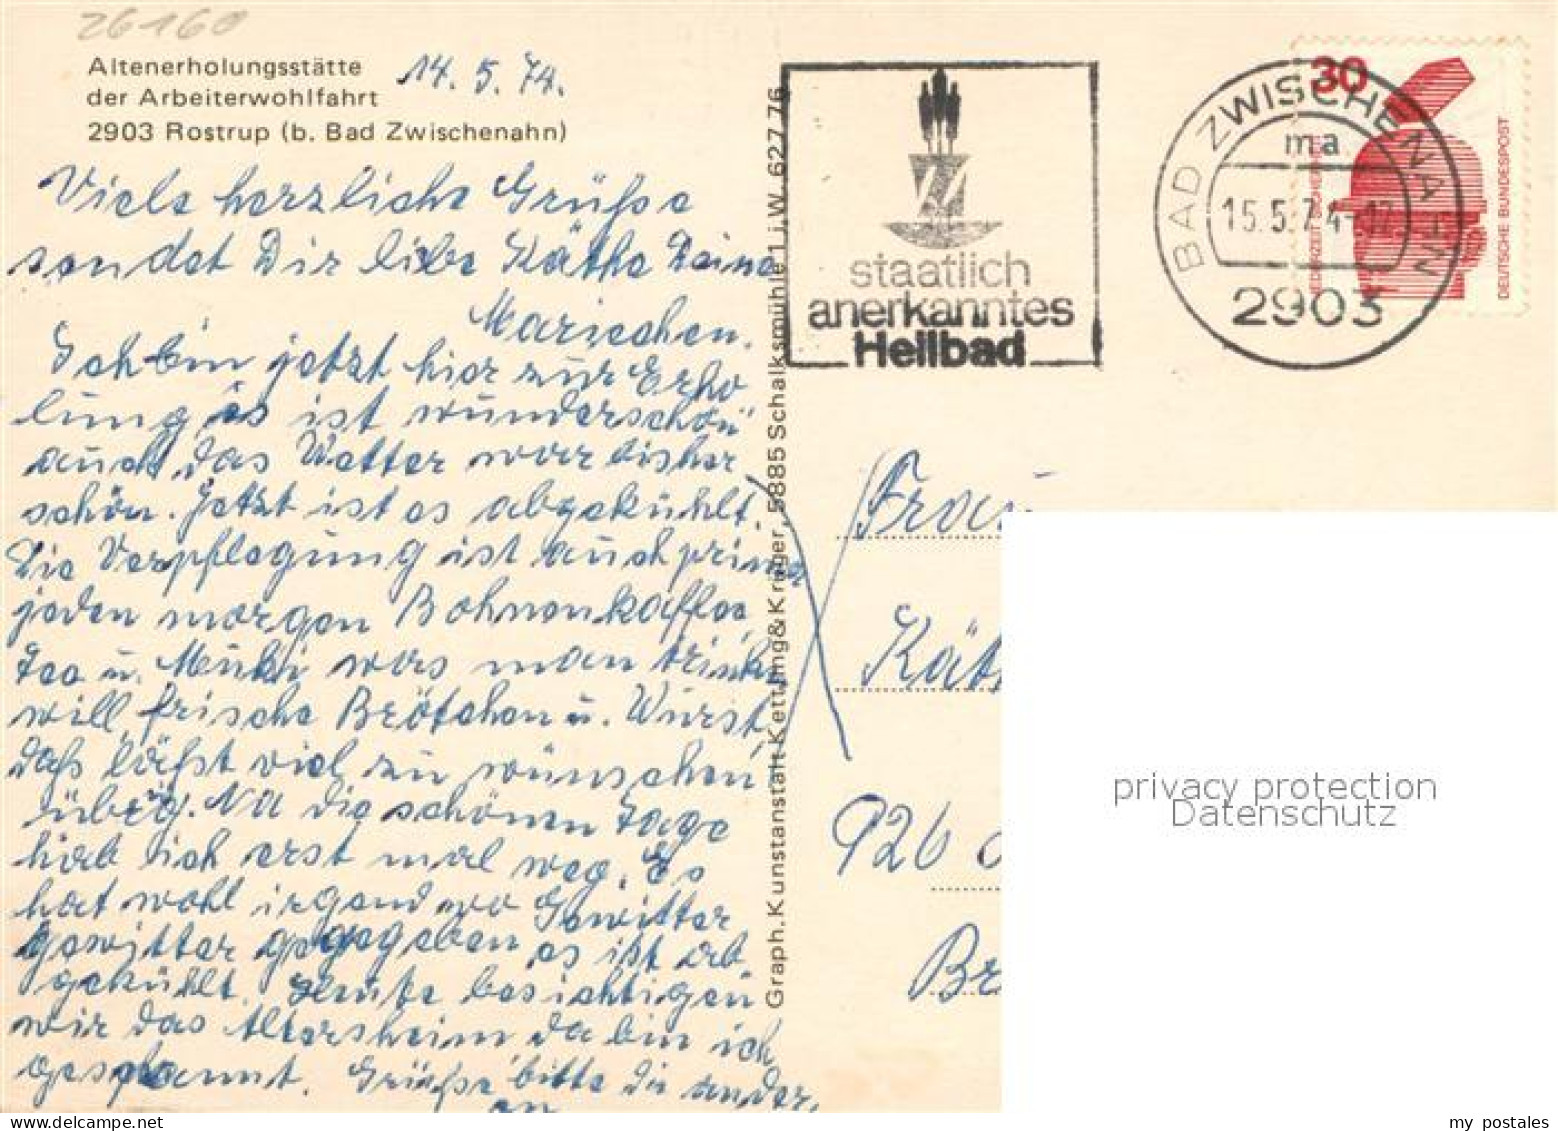 26160
Altenerholungsstätte
der Arbeiterwohlfahrt
2903 Rostrup (b. Bad Zwischenahn)
14. 5. 74.
Viele herzliche Grüße
sendet Dir liebe Käthe Deine
Mariechen.
Ich bin jetzt hier zur Erho
lung es ist wunderschön
auch das Wetter war bisher
schön. Jetzt ist es abgekühlt.
Die Verpflegung ist auch prima
jeden morgen Bohnenkaffee,
Tee u. Mukki was man trinken
will, frische Brötchen u. Wurst,
daß läßt viel zu wünschen
übrig. Na die schönen Tage
hab ich erst mal weg. Es
hat wohl irgend wo Gewitter
gewitter gegegeben es ist ab
gekühlt. Heute besichtigen
wir das Altersheim da bin ich
gespannt. Grüße bitte die ander,
en
Graph. Kunstanstalt Kettling & Krüger, 5885 Schalksmühle 1 i. W. 627 76
staatlich
anerkanntes
Heilbad
BAD ZWISCHENAHN
ma
15.5.74-17
2903
30
JEDERZEIT SICHERHEIT
DEUTSCHE BUNDESPOST
Frau
Kät
926
Br
privacy protection
Datenschutz
my postales